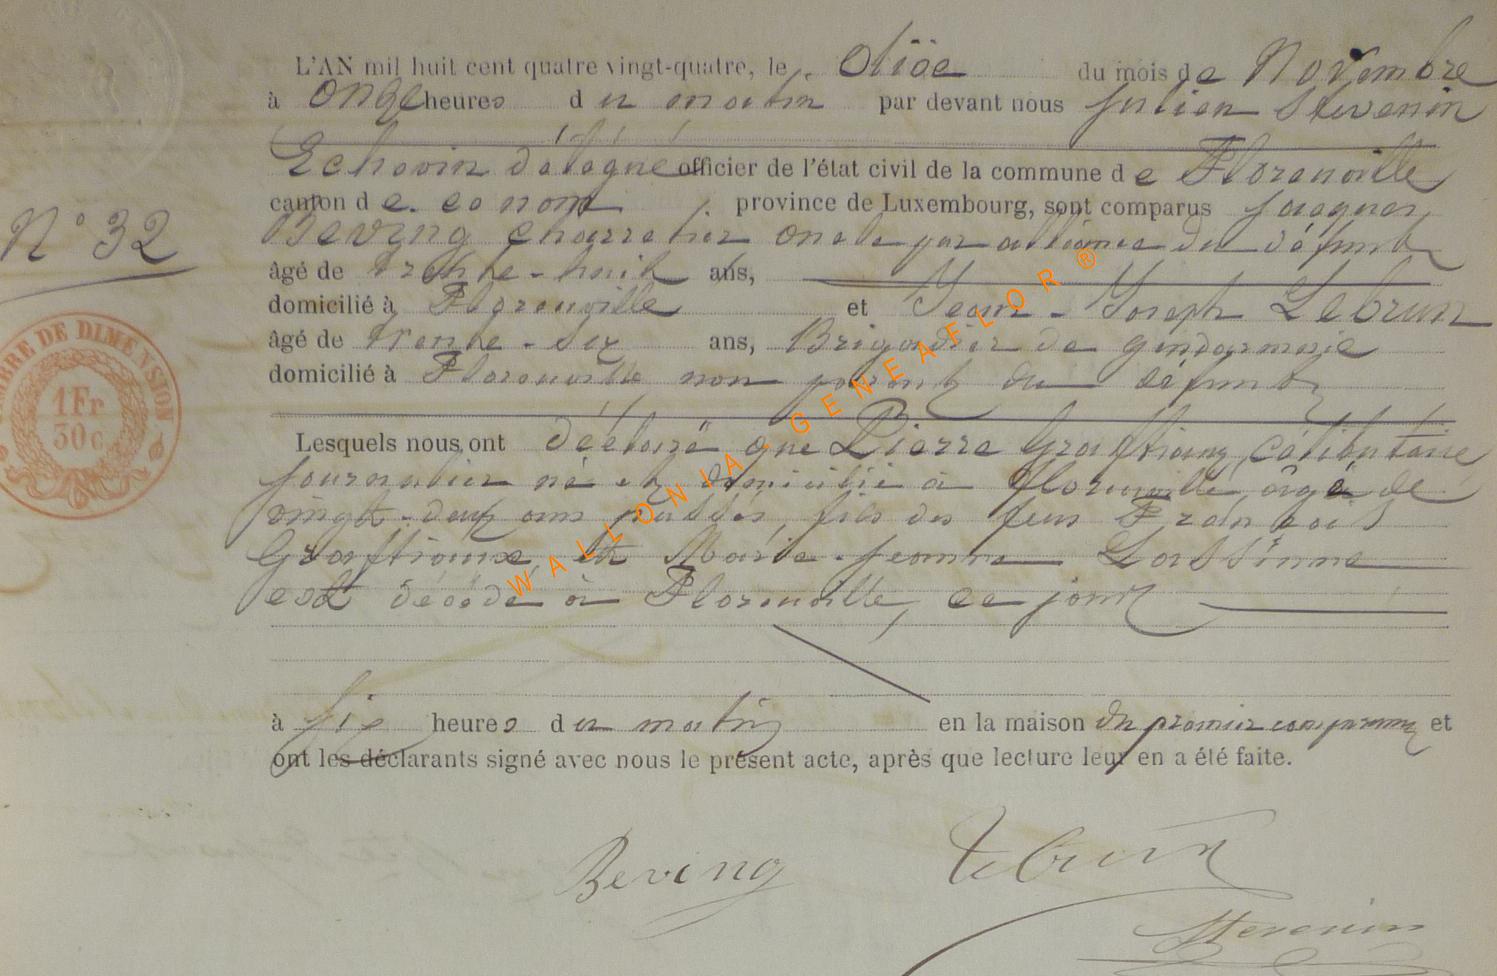 L'AN mil huit cent quatre vingt-quatre, le onze du mois de Novembre
à onze heures du matin par devant nous Julien Stevenin
Echevin délégué officier de l'état civil de la commune de Florenville
canton de ce nom, province de Luxembourg, sont comparus Jacques
N° 32
Beving charretier oncle par alliance du défunt
âgé de trente-huit ans,
domicilié à Florenville et Jean-Joseph Lebrun
âgé de trente-six ans, Brigadier de gendarmerie
domicilié à Florenville non parent du défunt
TIMBRE DE DIMENSION
1Fr
30c
Lesquels nous ont déclaré que Pierre Graftiaux, célibataire
journalier né et domicilié à Florenville, âgé de
vingt-deux ans passés, fils des feus François
Graftiaux et Marie-Jeanne Lassinne
est décédé à Florenville, ce jour
à six heures du matin en la maison du premier comparant et
ont les déclarants signé avec nous le présent acte, après que lecture leur en a été faite.
WALLONIA - GENEAFLOR ®
Beving Lebrun
Stevenin